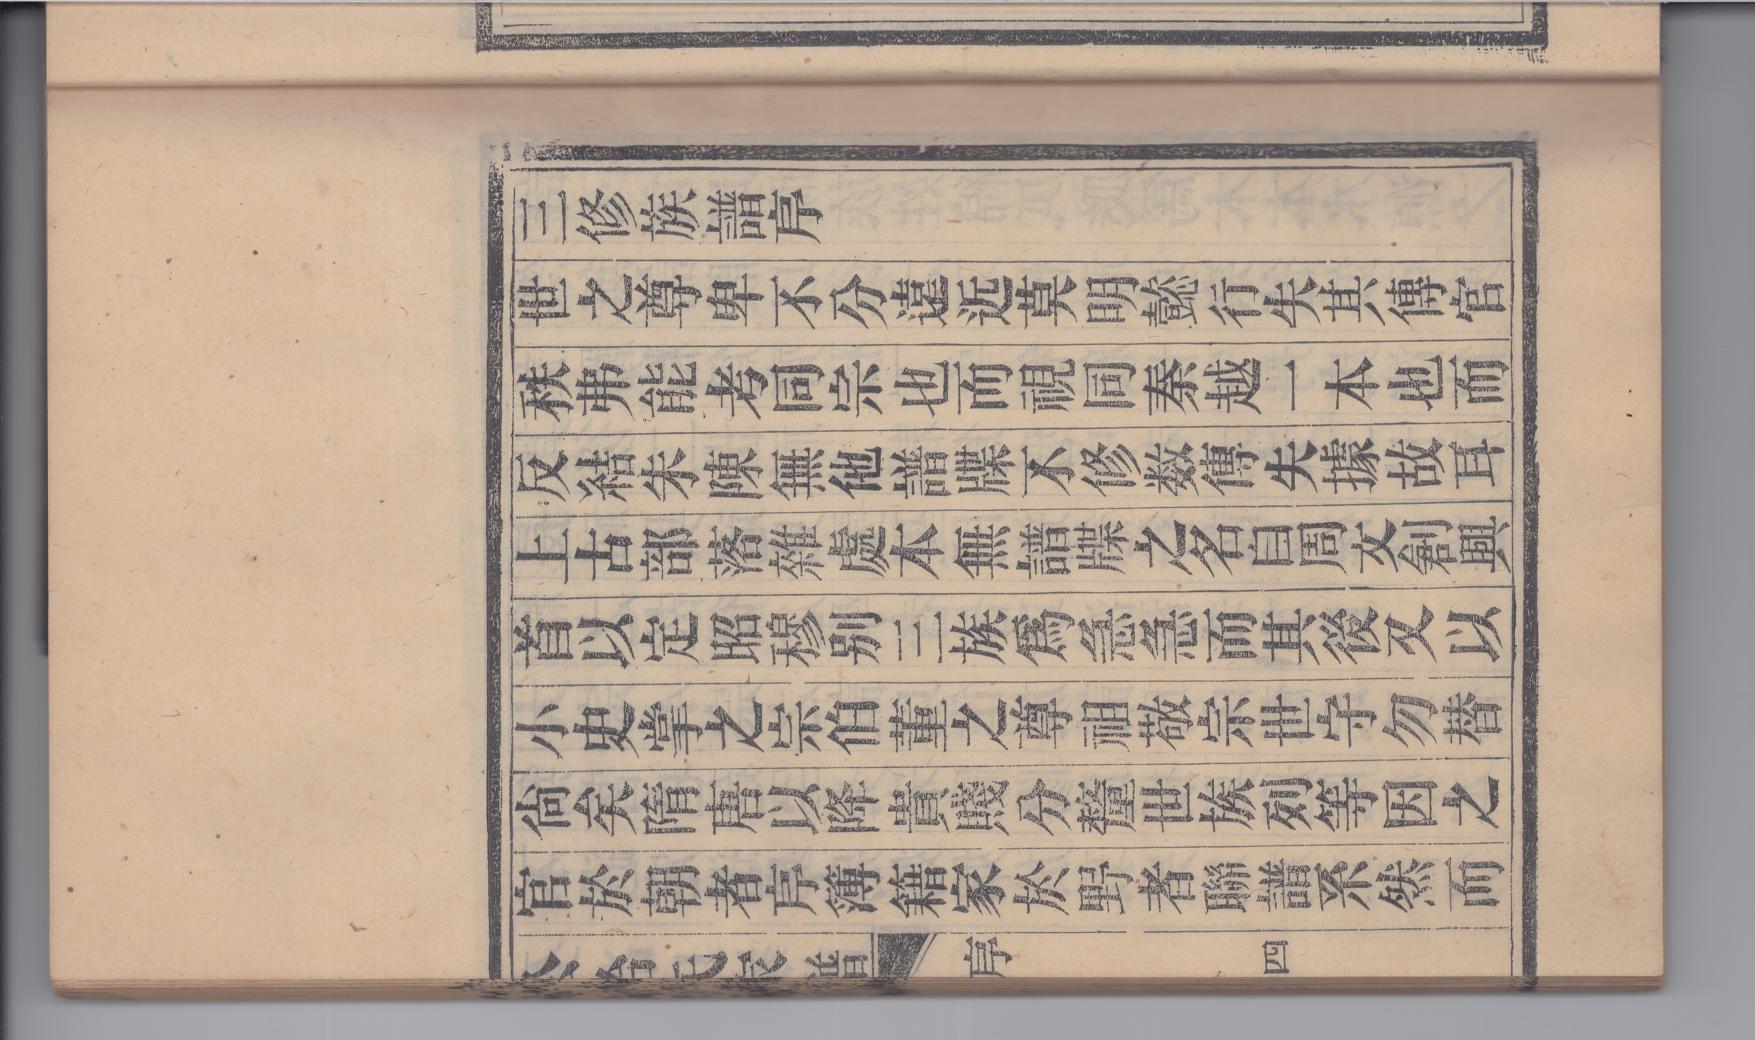 三修族譜序
世之尊卑不分遠近莫明懿行失其傳官
秩弗能考同宗也而視同秦越一本也而
反結朱陳無他譜牒不修数傳失據故耳
上古部落雜處本無譜牒之名自周文創興
首以定昭穆别三族為急急而其後又以
小史掌之宗伯董之尊祖敬宗世守勿替
尚矣隋唐以降貴賤分籍世族列等因之
官於朝者序簿籍家於野者聯譜系然而
氏族譜
序
四